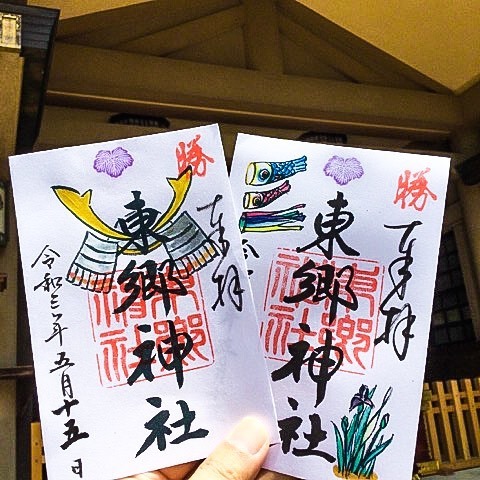 勝
奉拝
東郷神社
東郷神社
令和三年五月十五日
勝
奉拝
東郷神社
東郷神社
令